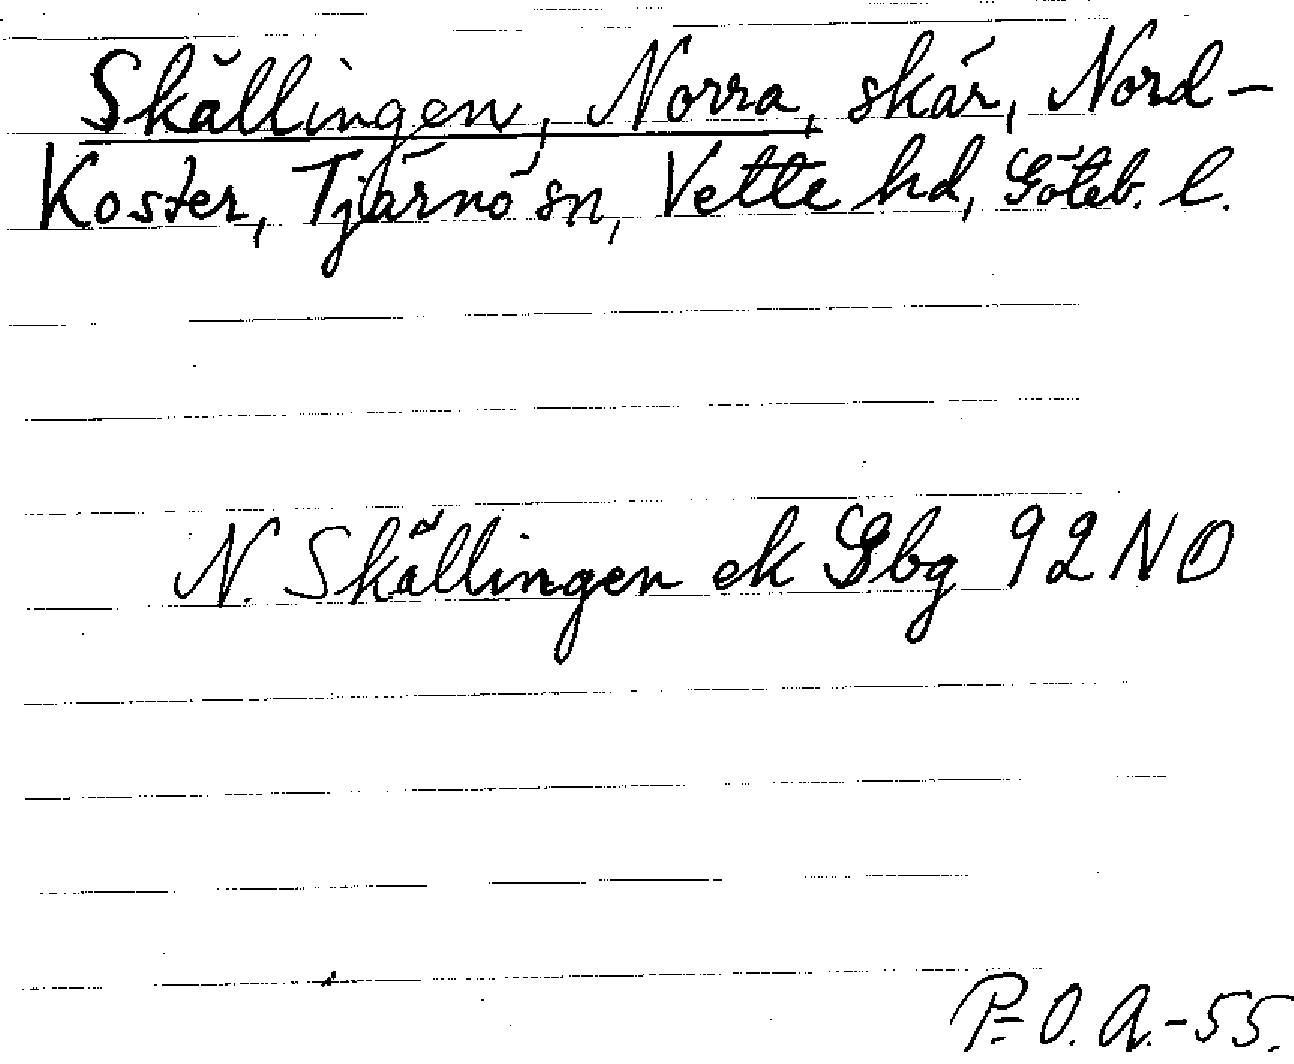 Skällingen, Norra, skär, Nord-
Koster, Tjärnö sn, Vette hd, Göteb. l.
N. Skällingen ek Gbg 92 NO
P-O. A.-55.